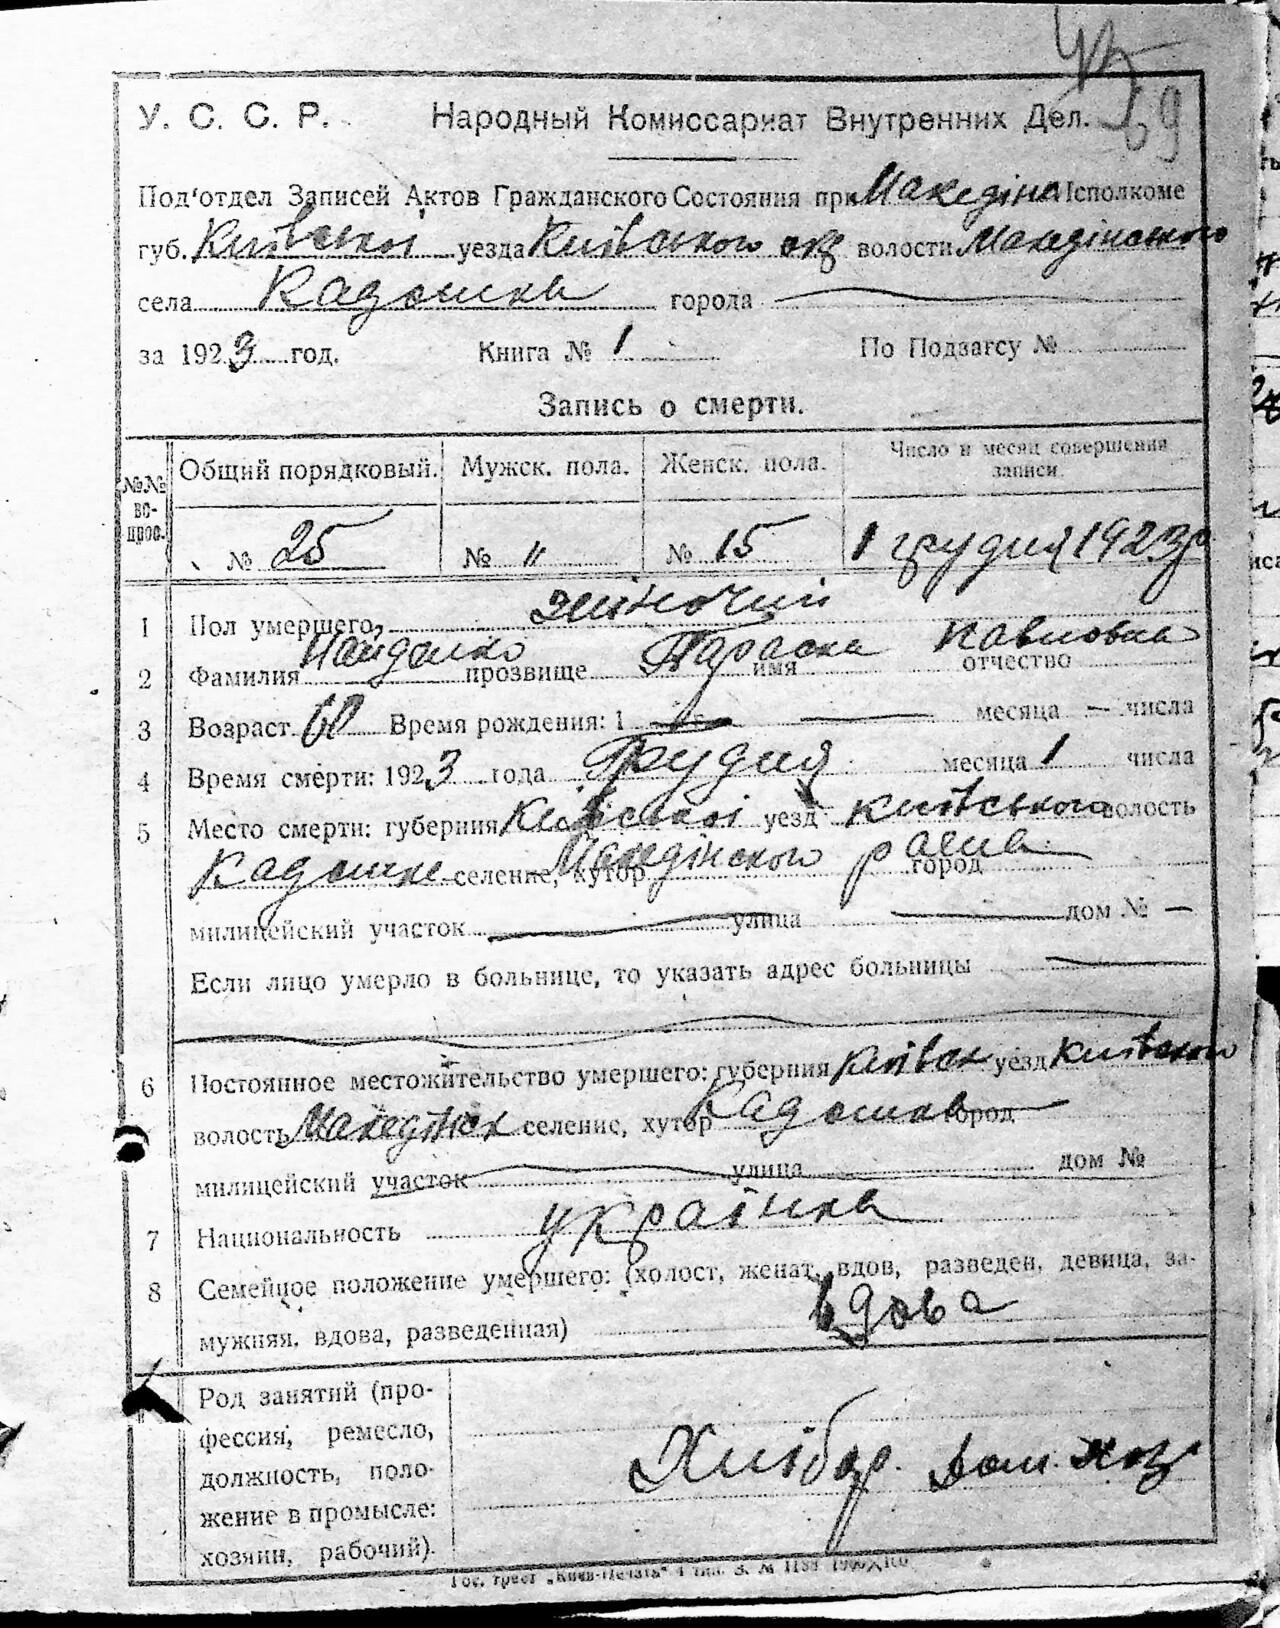 69
У. С. С. Р. Народный Комиссариат Внутренних Дел.
Под'отдел Записей Актов Гражданского Состояния при Македінс Исполкоме
губ. Київської уезда Київського окр волости Македінського
села Кадомка города —
за 1923 год. Книга № 1 По Подзагсу №
Запись о смерти.
№№ вопрос. Общий порядковый. Мужск. пола. Женск. пола. Число и месяц совершения записи.
№ 25 № " № 15 1 грудня 1923р
1 Пол умершего, жіночий
2 Фамилия прозвище Параска имя Павловна отчество
3 Возраст 60 Время рождения: 1 — месяца — числа
4 Время смерти: 1923 года Грудня месяца 1 числа
5 Место смерти: губерния Київської уезд Київського волость
Кадомке селение, хутор Македінского раена город
милицейский участок — улица — дом № —
Если лицо умерло в больнице, то указать адрес больницы —
6 Постоянное местожительство умершего: губерния Київск уезд Київского
волость Македінск селение, хутор Кадомка город —
милицейский участок — улица дом №
7 Национальность українка
8 Семейное положение умершего: (холост, женат, вдов, разведен, девица, за-
мужняя, вдова, разведенная) вдова
Род занятий (про-
фессия, ремесло,
должность, поло-
жение в промысле:
хозяин, рабочий).
Хлібор. дом. хоз
Гос. трест „Киев-Печать" 4 тип. З. № 1188